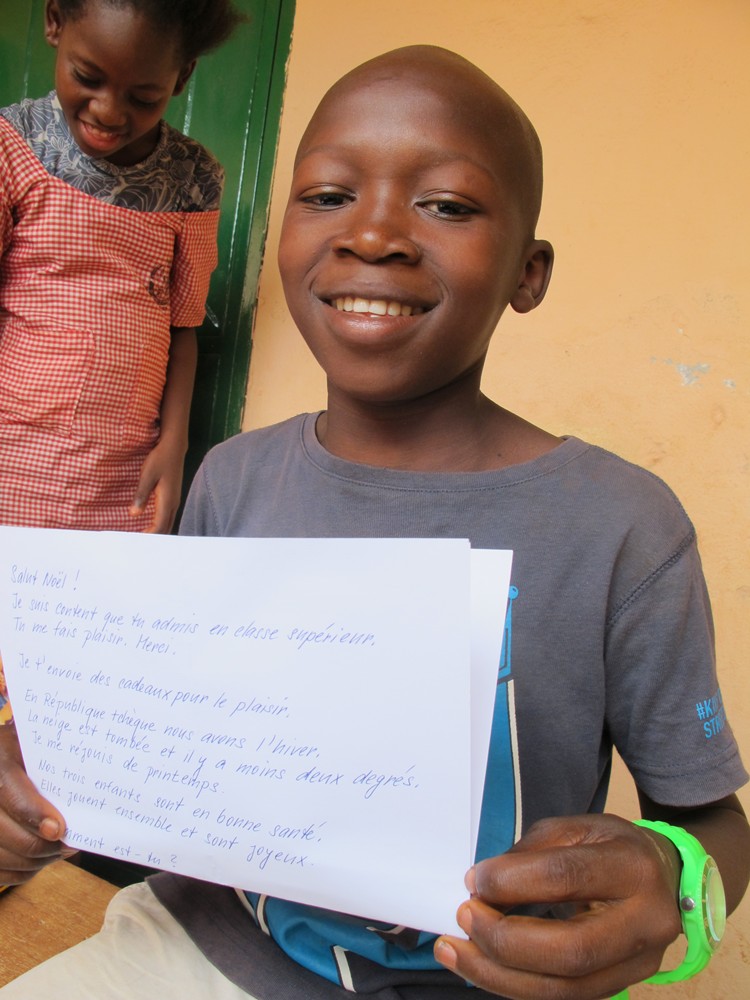 Salut Noël !
Je suis content que tu admis en classe supérieur.
Tu me fais plaisir. Merci.
Je t'envoie des cadeaux pour le plaisir.
En République tchèque nous avons l'hiver.
La neige est tombée et il y a moins deux degrés.
Je me réjouis de printemps.
Nos trois enfants sont en bonne santé.
Elles jouent ensemble et sont joyeux.
est-tu ?